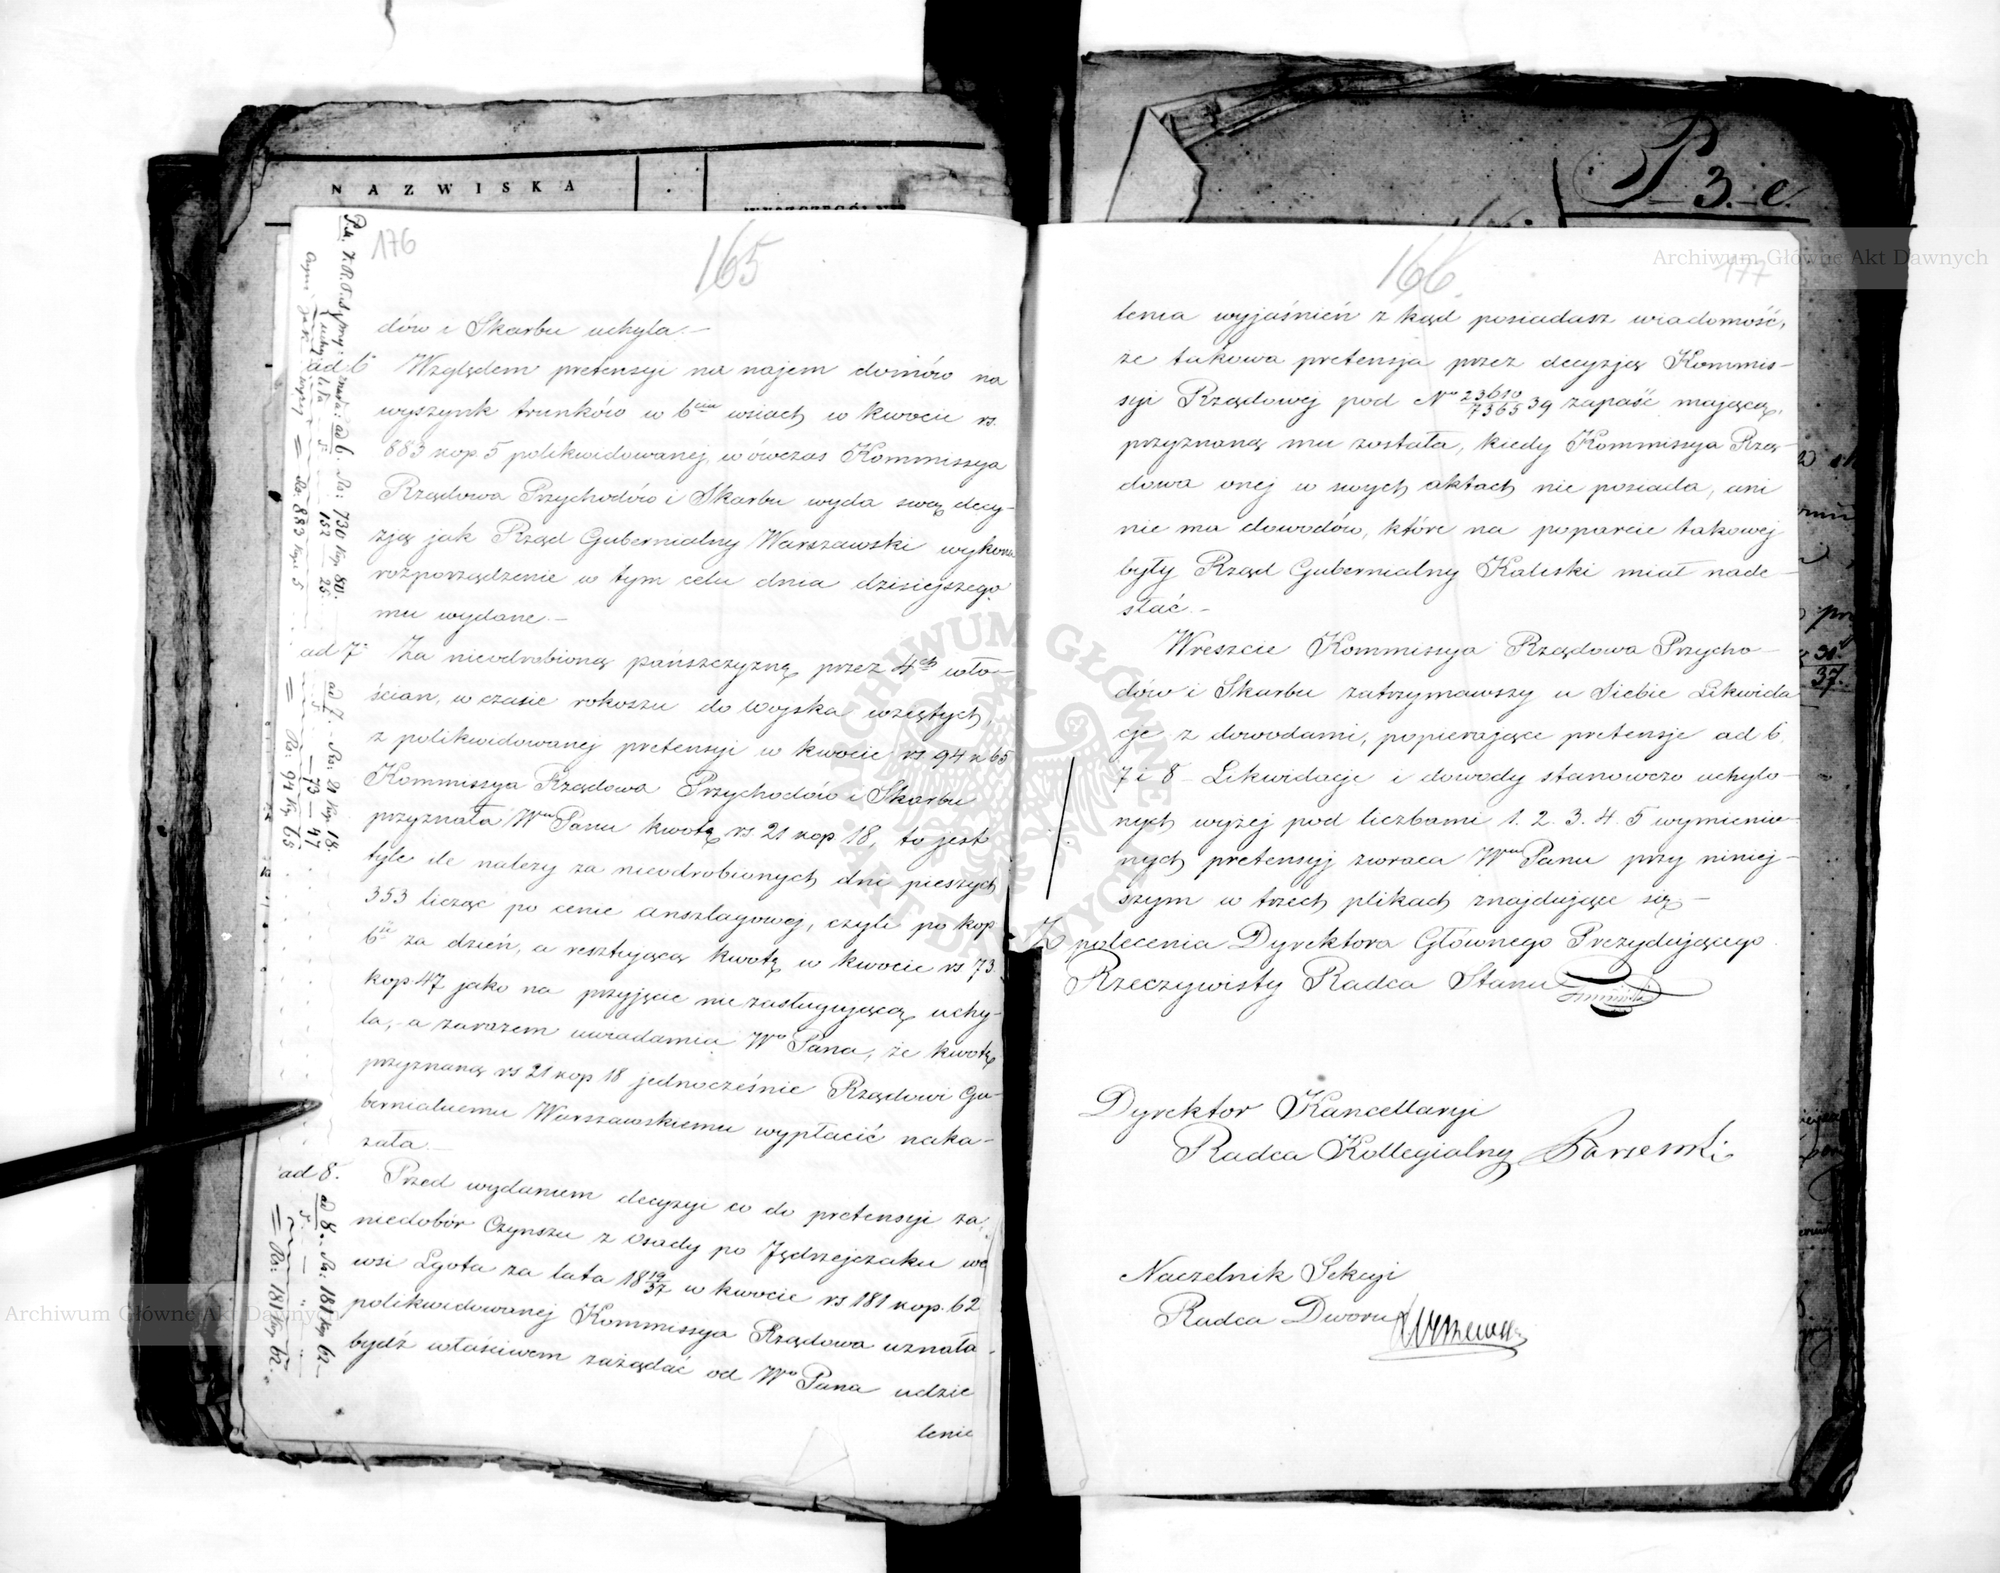 NAZWISKA
P 3. e.
176
165
dów i Skarbu uchyla.—
ad 6 Względem pretensyi na najem domów na
wyszynk trunków w 6ciu wsiach w kwocie rs.
883 kop. 5 polikwidowanej, wówczas Kommissya
Rządowa Przychodów i Skarbu wyda swą decy-
zją jak Rząd Gubernialny Warszawski wykona
rozporządzenie w tym celu dnia dzisiejszego
mu wydane.—
ad 7. Za nieodrobioną pańszczyznę przez 4ch wło-
ścian, w czasie rokoszu do wojska wziętych,
z polikwidowanej pretensyi w kwocie rs 94 k 65
Kommissya Rządowa Przychodów i Skarbu
przyznała Wmu Panu kwotę rs 21 kop 18, to jest
tyle ile należy za nieodrobionych dni pieszych
353 licząc po cenie anszlagowej, czyli po kop
6 za dzień, a resztującą kwotę w kwocie rs 73
kop 47 jako na przyjęcie nie zasługującą uchy-
la,- a zarazem uwiadamia Wo Pana, że kwotę
przyznaną rs 21 kop 18 jednocześnie Rządowi Gu-
bernialnemu Warszawskiemu wypłacić naka-
zała.—
ad 8. Przed wydaniem decyzyi co do pretensyi za
niedobór Czynszu z Osady po Jędrzejczaku we
wsi Lgota za lata 18 19/37 w kwocie rs 181 kop. 62
polikwidowanej Kommissya Rządowa uznała
bydź właściwem zażądać od Wo Pana udzie
lenie
ad 6. Rs: 730 kop 80.
152 — 25
= Rs: 883 kop 5
ad 7. Rs: 21 kop 18.
— 73 — 47
= Rs: 94 kop 65
ad 8. Rs: 181 kop 62
= Rs: 181 kop 62.
166.
177
lenia wyjaśnień z kąd posiadasz wiadomość,
że takowa pretensja przez decyzją Kommis-
syi Rządowej pod No 23610/7365 39 zapaść mającą,
przyznaną mu została, kiedy Kommissya Rzą-
dowa onej w swych aktach nie posiada, ani
nie ma dowodów, które na poparcie takowej
były Rząd Gubernialny Kaliski miał nade-
słać.—
Wreszcie Kommissya Rządowa Przycho-
dów i Skarbu zatrzymawszy u Siebie Likwida
cje z dowodami, popierające pretensje ad 6.
7 i 8 — Likwidacje i dowody stanowczo uchylo-
nych wyżej pod liczbami 1. 2. 3. 4. 5 wymienio-
nych pretensyj zwraca Wmu Panu przy niniej-
szym w trzech plikach znajdujące się.—
Z polecenia Dyrektora Głównego Prezydującego
Rzeczywisty Radca Stanu
Dyrektor Kancellaryi
Radca Kollegialny
Naczelnik Sekcyi
Radca Dworu
Archiwum Główne Akt Dawnych
Archiwum Główne Akt Dawnych
ARCHIWUM GŁÓWNE AKT DAWNYCH